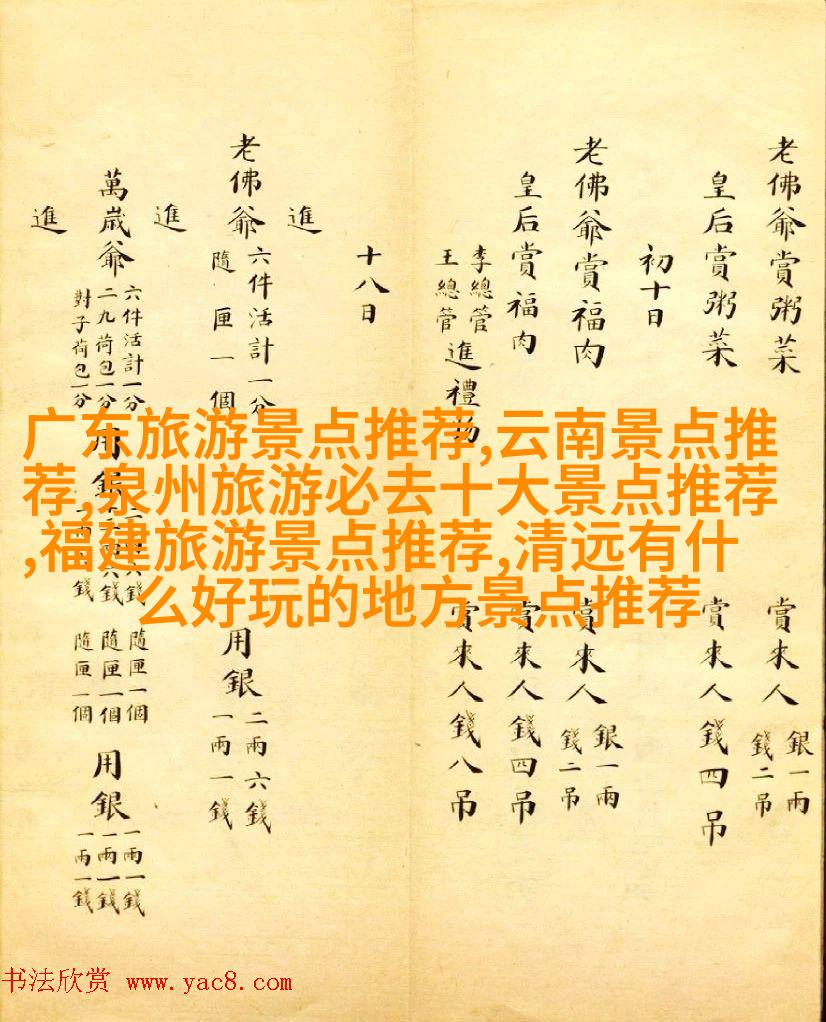 老佛爺賞粥菜 賞來人 銀一兩 錢二吊
皇后賞粥菜 賞來人錢四吊
初十日
老佛爺賞福肉 賞來人 銀一兩 錢二吊
皇后賞福肉 賞來人錢四吊
李總管 王總管 進禮物 賞來人錢八吊
十八日
進
老佛爺 六件活計一分 隨匣一個 用銀 二兩六錢 一兩一錢
進
萬歲爺 六件活計一分 二九荷包一分 對子荷包一分 用銀 隨匣一個 隨匣一個 隨匣一個 用銀 一兩一錢 一兩一錢 一兩一錢
進
广东旅游景点推荐,云南景点推
荐,泉州旅游必去十大景点推荐
,福建旅游景点推荐,清远有什
么好玩的地方景点推荐
书法欣赏 www.yac8.com